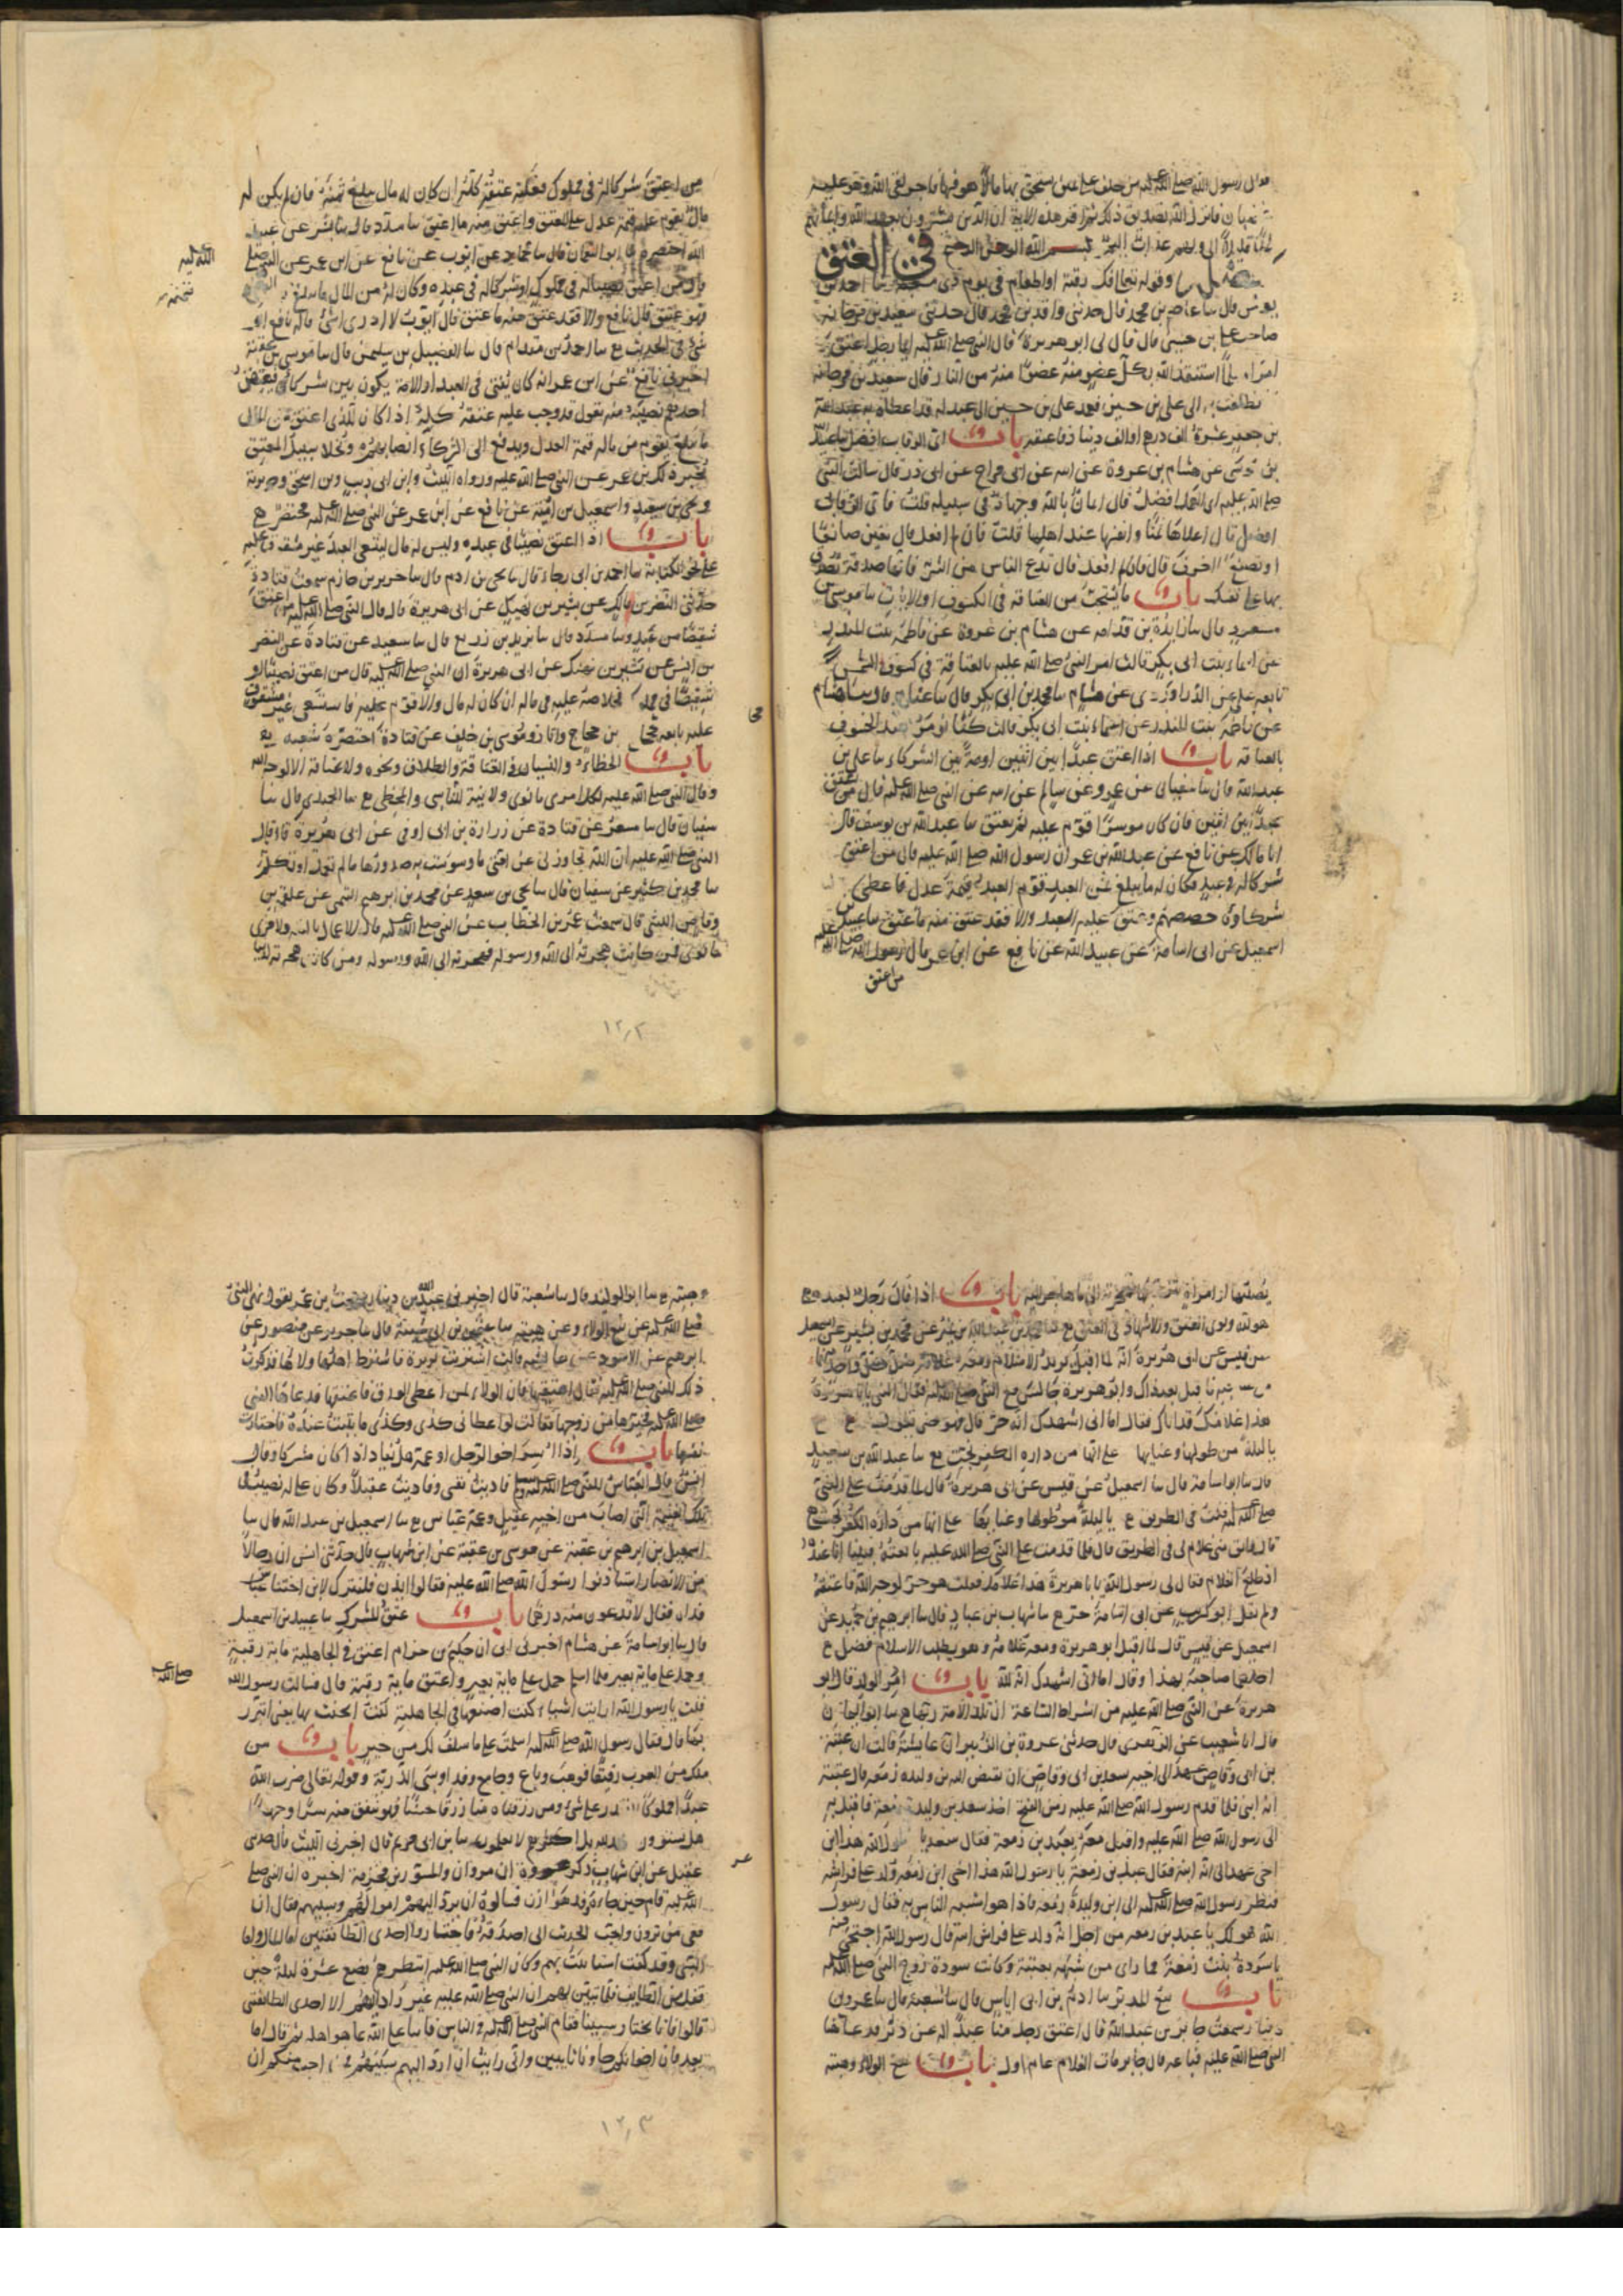 قال رسول الله صلى الله عليه من حلف على يمين يستحق بها مالا هو فيها فاجر لقي الله وهو عليه
غضبان فانزل الله تصديق ذلك ثم اقترا هذه الاية ان الذين يشترون بعهد الله وايمانهم
ثمنا قليلا الى ولهم عذاب اليم بسم الله الرحمن الرحيم في العتق
وقوله تعالى فك رقبة او اطعام في يوم ذي مسغبة سا احمد بن
يونس قال سا عاصم بن محمد قال حدثني واقد بن محمد قال حدثني سعيد بن مرجانة
صاحب علي بن حسين قال قال لي ابو هريرة قال النبي صلى الله عليه ايما رجل اعتق
امرا مسلما استنقذ الله بكل عضو منه عضوا منه من النار قال سعيد بن مرجانة
فانطلقت به الى علي بن حسين فعمد علي بن حسين الى عبد له قد اعطاه به عبد الله
بن جعفر عشرة الف درهم او الف دينار فاعتقه باب اي الرقاب افضل سا عبيد الله
بن موسى عن هشام بن عروة عن ابيه عن ابي مراوح عن ابي ذر قال سالت النبي
صلى الله عليه اي العمل افضل قال ايمان بالله وجهاد في سبيله قلت فاي الرقاب
افضل قال اعلاها ثمنا وانفسها عند اهلها قلت فان لم افعل قال تعين صانعا
او تصنع لاخرق قال فان لم افعل قال تدع الناس من الشر فانها صدقة تصدق
بها على نفسك باب ما يستحب من العتاقة في الكسوف او الايات سا موسى بن
مسعود قال سا زايدة بن قدامة عن هشام بن عروة عن فاطمة بنت المنذر
عن اسماء بنت ابي بكر قالت امر النبي صلى الله عليه بالعتاقة في كسوف الشمس
تابعه علي عن الدراوردي عن هشام سا محمد بن ابي بكر قال سا عثام قال سا هشام
عن فاطمة بنت المنذر عن اسماء بنت ابي بكر قالت كنا نومر عند الخسوف
بالعتاقة باب اذا اعتق عبدا بين اثنين او امة بين الشركاء سا علي بن
عبد الله قال سا سفيان عن عمرو عن سالم عن ابيه عن النبي صلى الله عليه قال من اعتق
عبدا بين اثنين فان كان موسرا قوم عليه ثم يعتق سا عبد الله بن يوسف قال
انا مالك عن نافع عن عبد الله بن عمر ان رسول الله صلى الله عليه قال من اعتق
شركا له في عبد فكان له ما يبلغ ثمن العبد قوم العبد قيمة عدل فاعطى
شركاوه حصصهم وعتق عليه العبد والا فقد عتق منه ما عتق سا عبيد بن
اسمعيل عن ابي اسامة عن عبيد الله عن نافع عن ابن عمر قال رسول الله صلى الله عليه
من اعتق
من اعتق شركا له في مملوك فعليه عتقه كله ان كان له مال يبلغ ثمنه فان لم يكن له
مال يقوم عليه قيمة عدل على المعتق واعتق منه ما اعتق سا مسدد قال سا بشر عن عبيد
الله اختصره سا ابو النعمان قال سا حماد عن ايوب عن نافع عن ابن عمر عن النبي صلى
الله عليه
قال من اعتق نصيبا له في مملوك او شركا له في عبده وكان له من المال ما يبلغ
فهو عتيق قال نافع والا فقد عتق منه ما عتق قال ايوب لا ادري اشئ قاله نافع او
شئ في الحديث ع سا احمد بن مقدام قال سا الفضيل بن سليمن قال سا موسى بن عقبة
اخبرني نافع عن ابن عمر انه كان يفتي في العبد او الامة يكون بين شركاء فيعتق
احدهم نصيبه منه يقول قد وجب عليه عتقه كله اذا كان للذي اعتق من المال
ما يبلغ يقوم من ماله قيمة العدل ويدفع الى الشركاء انصباؤهم ويخلا سبيل المعتق
يخبر ذلك بن عمر عن النبي صلى الله عليه ورواه الليث وابن ابي ذيب وبن اسحق وجويرية
ويحيى بن سعيد واسمعيل بن امية عن نافع عن ابن عمر عن النبي صلى الله عليه مختصر ع
باب اذا اعتق نصيبا في عبده وليس له مال ليستسعي العبد غير مشقوق عليه
على نحو الكتابة سا احمد بن ابي رجاء قال سا يحيى بن ادم قال سا جرير بن حازم سمعت قتادة
حدثني النضر بن مالك عن بشير بن نهيك عن ابي هريرة قال قال النبي صلى الله عليه من اعتق
شقيصا من عبد وسا مسدد قال سا يزيد بن زريع قال سا سعيد عن قتادة عن النضر
بن انس عن بشير بن نهيك عن ابي هريرة ان النبي صلى الله عليه قال من اعتق نصيبا او
شقيصا في مملوك فخلاصه عليه في ماله ان كان له مال والا قوم عليه فاستسعي غير مشقوق
عليه تابعه حجاج بن حجاج وابان وموسى بن خلف عن قتادة اختصره شعبه ع
باب الخطاء والنسيان في العتاقة والطلاق ونحوه ولا عتاقة الا لوجه الله
وقال النبي صلى الله عليه لكل امرئ ما نوى ولا نية للناسي والمخطئ ع سا الحميدي قال سا
سفيان قال سا مسعر عن قتادة عن زرارة بن ابي اوفى عن ابي هريرة قال قال
النبي صلى الله عليه ان الله تجاوز لي عن امتي ما وسوست به صدورها ما لم تعمل او تكلم
سا محمد بن كثير عن سفيان قال سا يحيى بن سعيد عن محمد بن ابرهيم التيمي عن علقمة بن
وقاص الليثي قال سمعت عمر بن الخطاب عن النبي صلى الله عليه قال الاعمال بالنية ولامرئ
ما نوى فمن كانت هجرته الى الله ورسوله فهجرته الى الله ورسوله ومن كانت هجرته لدنيا
١٢٫٢
يصيبها او امراة يتزوجها فهجرته الى ما هاجر اليه باب اذا قال رجل لعبده
هو لله ونوى العتق والاشهاد في العتق ع سا محمد بن عبد الله بن نمير عن محمد بن بشر عن اسمعيل
عن قيس عن ابي هريرة انه لما اقبل يريد الاسلام ومعه غلامه ضل كل واحد منهما
من صاحبه فاقبل بعد ذاك وابو هريرة جالس مع النبي صلى الله عليه فقال النبي يا با هريرة
هذا غلامك قد اتاك فقال اما اني اشهدك انه حر قال فهو حين يقول ع
يا ليلة من طولها وعنايها على انها من دارة الكفر نجت ع سا عبيد الله بن سعيد
قال سا ابو اسامة قال سا اسمعيل عن قيس عن ابي هريرة قال لما قدمت على النبي
صلى الله عليه قلت في الطريق ع يا ليلة من طولها وعنايها على انها من دارة الكفر نجت ع
قال وابق مني غلام لي في الطريق قال فلما قدمت على النبي صلى الله عليه بايعته فبينا انا عنده
اذ طلع الغلام فقال لي رسول الله يا با هريرة هذا غلامك فقلت هو حر لوجه الله فاعتقه
ولم يقل ابو كريب عن ابي اسامة حر ع سا شهاب بن عباد قال سا ابرهيم بن حميد عن
اسمعيل عن قيس قال لما اقبل ابو هريرة ومعه غلامه وهو يطلب الاسلام فضل ع
احدهما صاحبه بهذا وقال اما اني اشهدك انه لله باب ام الولد قال ابو
هريرة عن النبي صلى الله عليه من اشراط الساعة ان تلد الامة ربها ع سا ابو اليمان
قال انا شعيب عن الزهري قال حدثني عروة بن الزبير ان عايشة قالت ان عتبة
بن ابي وقاص عهد الى اخيه سعد بن ابي وقاص ان يقبض اليه بن وليدة زمعة قال عتبة
انه ابني فلما قدم رسول الله صلى الله عليه زمن الفتح اخذ سعد بن وليدة زمعة فاقبل به
الى رسول الله صلى الله عليه واقبل معه بعبد بن زمعة فقال سعد يا رسول الله هذا ابن
اخي عهد الى انه ابنه فقال عبد بن زمعة يا رسول الله هذا اخي ابن زمعة ولد على فراشه
فنظر رسول الله صلى الله عليه الى ابن وليدة زمعة فاذا هو اشبه الناس به فقال رسول
الله هو لك يا عبد بن زمعه من اجل انه ولد على فراش ابيه قال رسول الله احتجبي منه
يا سودة بنت زمعة مما راى من شبهه بعتبة وكانت سودة زوج النبي صلى الله عليه
باب بيع المدبر سا ادم بن ابي اياس قال سا شعبة قال سا عمرو بن
دينار سمعت جابر بن عبد الله قال اعتق رجل منا عبدا له عن دبر فدعا
النبي صلى الله عليه فباعه قال جابر مات الغلام عام اول باب بيع الولاء وهبته
وهبته ع سا ابو الوليد قال سا شعبة قال اخبرني عبد الله بن دينار سمعت بن عمر يقول نهى النبي
صلى الله عليه عن بيع الولاء وعن هبته سا عثمن بن ابي شيبة قال سا جرير عن منصور عن
ابرهيم عن الاسود عن عايشه قالت اشتريت بريرة فاشترط اهلها ولاءها فذكرت
ذلك للنبي صلى الله عليه فقال اعتقيها فان الولاء لمن اعطى الورق فاعتقتها فدعاها النبي
صلى الله عليه فخيرها من زوجها فقالت لو اعطاني كذى وكذى ما ثبت عنده فاختارت
نفسها باب اذا اسر اخو الرجل او عمه هل يفادا اذا كان مشركا وقال
انس قال العباس للنبي صلى الله عليه فاديت نفسي وفاديت عقيلا وكان علي له نصيب في
تلك الغنيمة التي اصاب من اخيه عقيل وعمه عباس ع سا اسمعيل بن عبد الله قال سا
اسمعيل بن ابرهيم بن عقبة عن موسى بن عقبة عن ابن شهاب قال حدثني انس ان رجالا
من الانصار استاذنوا رسول الله صلى الله عليه فقالوا ايذن فلنترك لابن اختنا عباس
فداه فقال لا تدعون منه درهما باب عتق المشرك سا عبيد بن اسمعيل
قال سا ابو اسامة عن هشام اخبرني ابي ان حكيم بن حزام اعتق في الجاهلية ماية رقبة
وحمل على ماية بعير فلما اسلم حمل على ماية بعير واعتق ماية رقبة قال فسالت رسول الله
صلى الله
قلت يا رسول الله ارايت اشياء كنت اصنعها في الجاهلية كنت اتحنث بها يعني اتبرر
بها قال فقال رسول الله صلى الله عليه اسلمت على ما سلف لك من خير باب من
ملك من العرب رقيقا فوهب وباع وجامع وفدا وسبى الذرية وقوله تعالى ضرب الله
عبدا مملوكا لا يقدر على شئ ومن رزقناه منا رزقا حسنا فهو ينفق منه سرا وجهرا
هل يستوون الحمد لله بل اكثرهم لا يعلمون سا بن ابي مريم قال اخبرني الليث قال حدثني
عقيل عن ابن شهاب ذكر عروة ان مروان والمسور بن مخرمة اخبره ان النبي صلى
الله عليه قام حين جاءه وفد هوازن فسالوه ان يرد اليهم اموالهم وسبيهم فقال ان
معي من ترون واحب الحديث الى اصدقه فاختاروا احدى الطائفتين اما المال واما
السبي وقد كنت استانيت بهم وكان النبي صلى الله عليه انتظرهم بضع عشرة ليلة حين
قفل من الطايف فلما تبين لهم ان النبي صلى الله عليه غير راد اليهم الا احدى الطائفتين
قالوا فانا نختار سبينا فقام النبي صلى الله عليه في الناس فاثنا على الله بما هو اهله ثم قال اما
بعد فان اخوانكم جاونا تايبين واني رايت ان ارد اليهم سبيهم فمن احب منكم ان
١٢٫٣